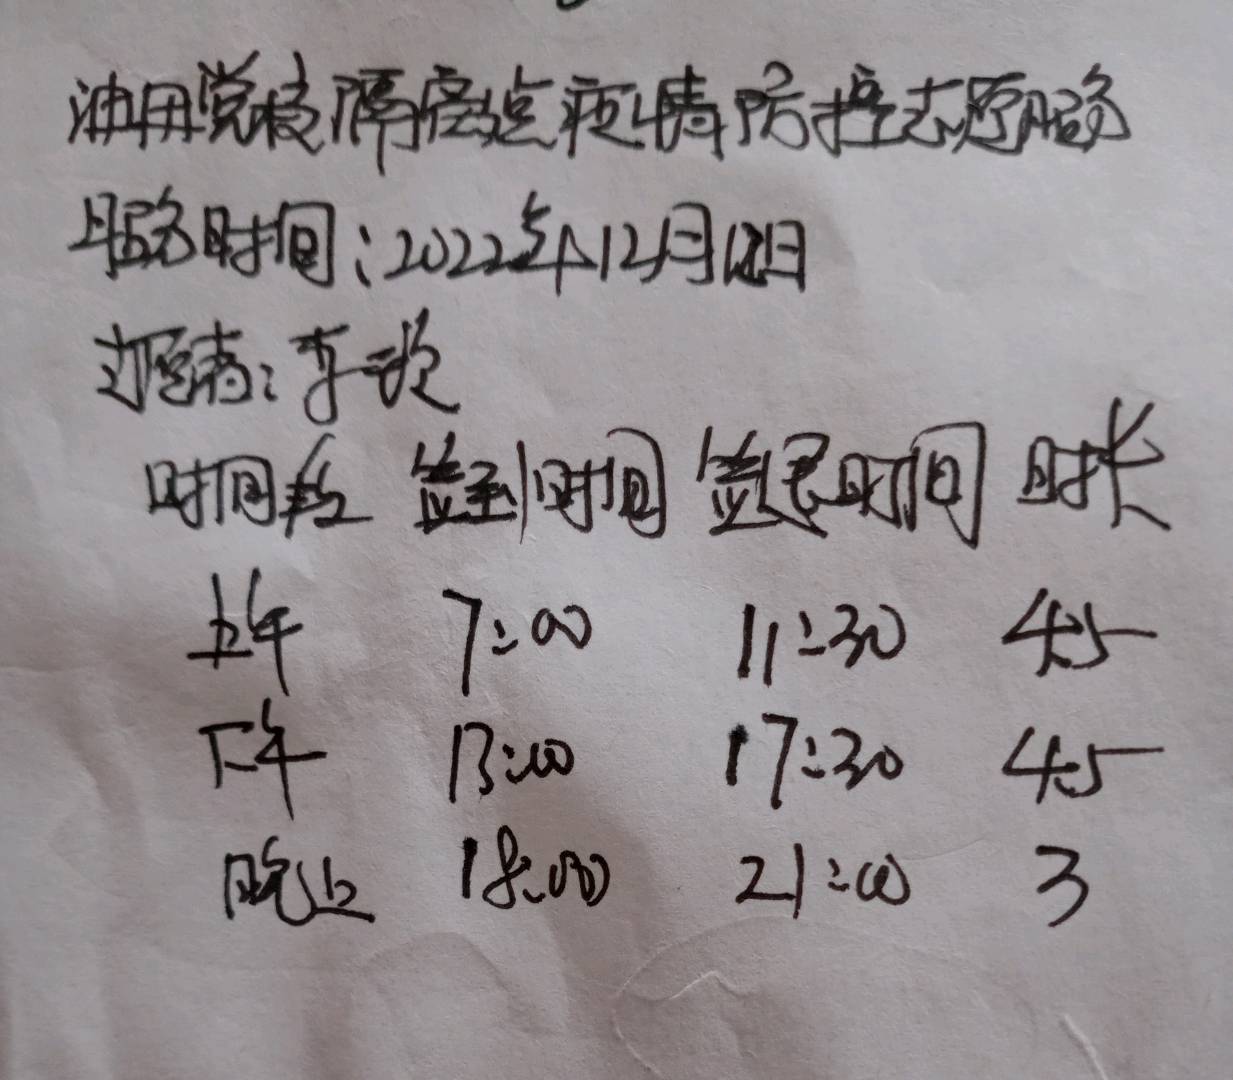 油田党校隔离点疫情防控志愿服务
服务时间:2022年12月12日
志愿者:李一波
时间段 签到时间 签退时间 时长
上午 7:00 11:30 4.5
下午 13:00 17:30 4.5
晚上 18:00 21:00 3